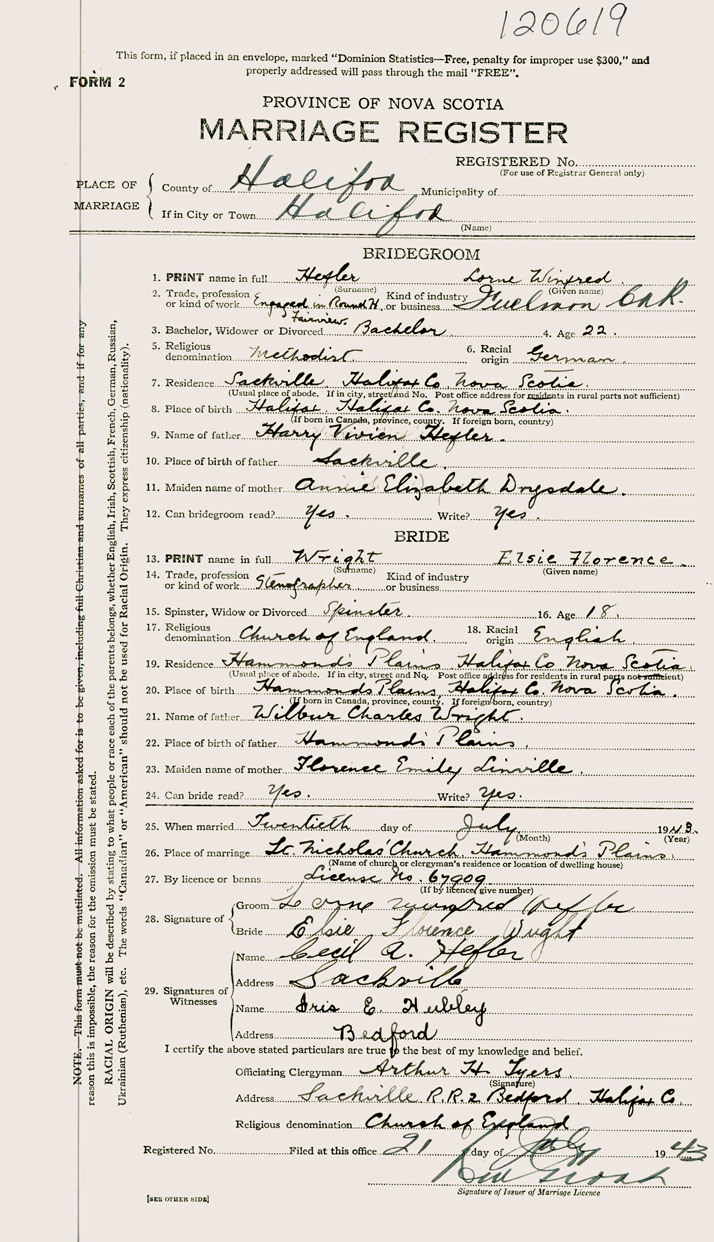 120619
This form, if placed in an envelope, marked “Dominion Statistics—Free, penalty for improper use $300,” and
properly addressed will pass through the mail “FREE”.
FORM 2
PROVINCE OF NOVA SCOTIA
MARRIAGE REGISTER
REGISTERED No.
(For use of Registrar General only)
PLACE OF MARRIAGE
County of Halifax Municipality of
If in City or Town Halifax
(Name)
BRIDEGROOM
1. PRINT name in full Hefler Lorne Winfred
(Surname) (Given name)
2. Trade, profession or kind of work Engaged in Round H. Fairview. Kind of industry or business CNR.
3. Bachelor, Widower or Divorced Bachelor 4. Age 22.
5. Religious denomination Methodist. 6. Racial origin German.
7. Residence Sackville, Halifax Co. Nova Scotia.
(Usual place of abode. If in city, street and No. Post office address for residents in rural parts not sufficient)
8. Place of birth Halifax, Halifax Co. Nova Scotia.
(If born in Canada, province, county. If foreign born, country)
9. Name of father Harry Vivien Hefler.
10. Place of birth of father Sackville.
11. Maiden name of mother Annie Elizabeth Drysdale.
12. Can bridegroom read? Yes. Write? Yes.
BRIDE
13. PRINT name in full Wright Elsie Florence.
(Surname) (Given name)
14. Trade, profession or kind of work Stenographer Kind of industry or business
15. Spinster, Widow or Divorced Spinster. 16. Age 18.
17. Religious denomination Church of England. 18. Racial origin English.
19. Residence Hammond's Plains Halifax Co Nova Scotia.
(Usual place of abode. If in city, street and No. Post office address for residents in rural parts not sufficient)
20. Place of birth Hammonds Plains, Halifax Co. Nova Scotia.
(If born in Canada, province, county. If foreign born, country)
21. Name of father Wilbur Charles Wright.
22. Place of birth of father Hammond's Plains.
23. Maiden name of mother Florence Emily Linville.
24. Can bride read? Yes. Write? Yes.
25. When married Twentieth day of July 1943.
(Month) (Year)
26. Place of marriage St. Nicholas' Church Hammond's Plains.
(Name of church or clergyman's residence or location of dwelling house)
27. By licence or banns License No. 67909
(If by licence, give number)
28. Signature of
Groom Lorne Winfred Hefler
Bride Elsie Florence Wright
29. Signatures of Witnesses
Name Cecil A. Hefler
Address Sackville
Name Iris E. Hubley
Address Bedford
I certify the above stated particulars are true to the best of my knowledge and belief.
Officiating Clergyman Arthur H. Tyers
(Signature)
Address Sackville R.R.2 Bedford, Halifax Co.
Religious denomination Church of England
Registered No. Filed at this office 21 day of July 1943
Signature of Issuer of Marriage Licence
[SEE OTHER SIDE]
NOTE.—This form must not be mutilated. All information asked for is to be given, including full Christian and surnames of all parties, and if for any
reason this is impossible, the reason for the omission must be stated.
RACIAL ORIGIN will be described by stating to what people or race each of the parents belongs, whether English, Irish, Scottish, French, German, Russian,
Ukrainian (Ruthenian), etc. The words “Canadian” or “American” should not be used for Racial Origin. They express citizenship (nationality).